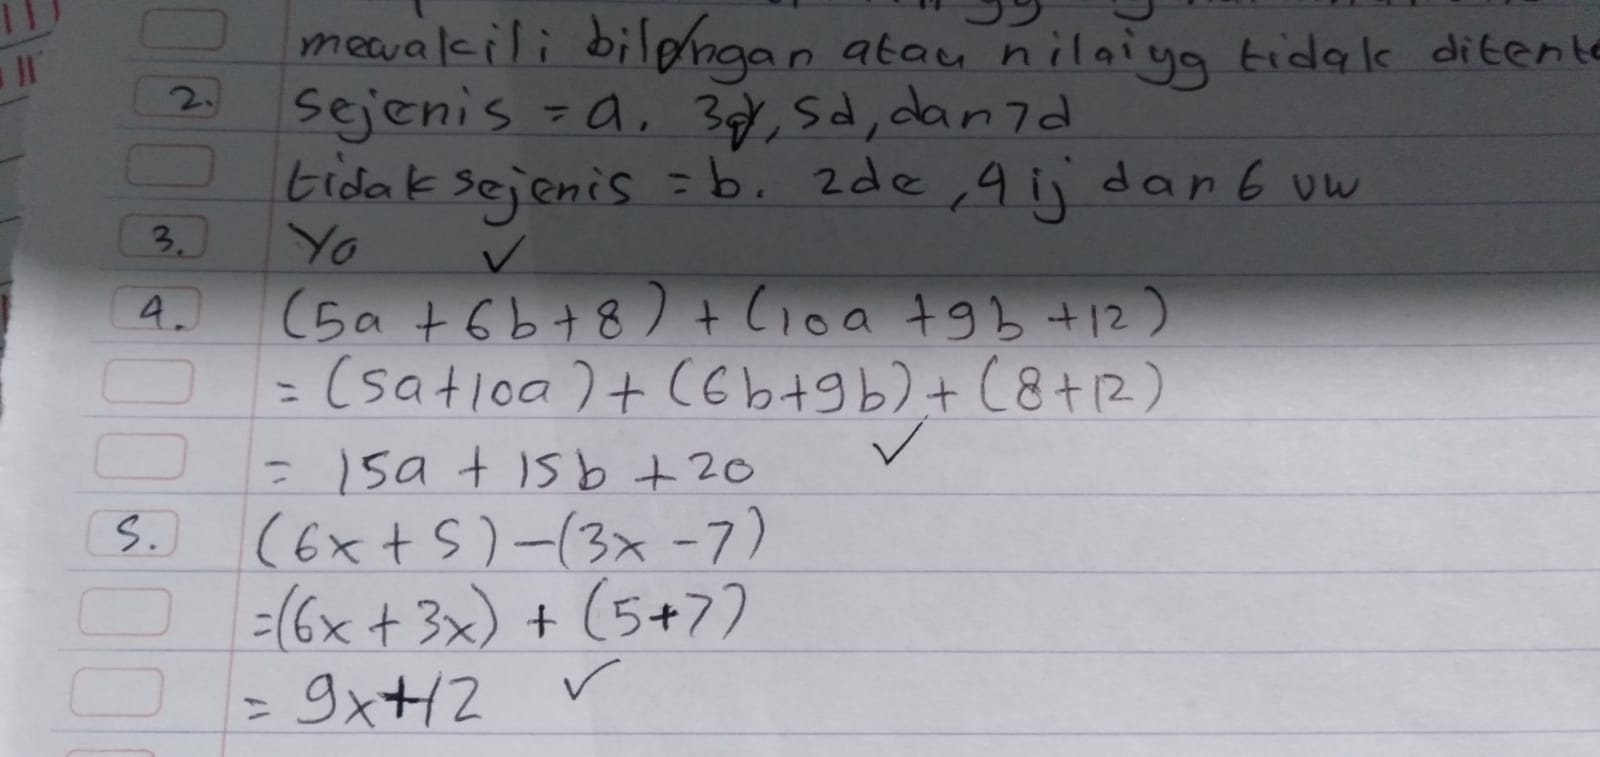 mewakili bilangan atau nilai yg tidak ditent
2. sejenis = a. 3d, 5d, dan 7d
tidak sejenis = b. 2de, 4ij dan 6 uw
3. Ya ✓
4. (5a + 6b + 8) + (10a + 9b + 12)
= (5a + 10a) + (6b + 9b) + (8 + 12)
= 15a + 15b + 20 ✓
5. (6x + 5) - (3x - 7)
= (6x + 3x) + (5 + 7)
= 9x + 12 ✓